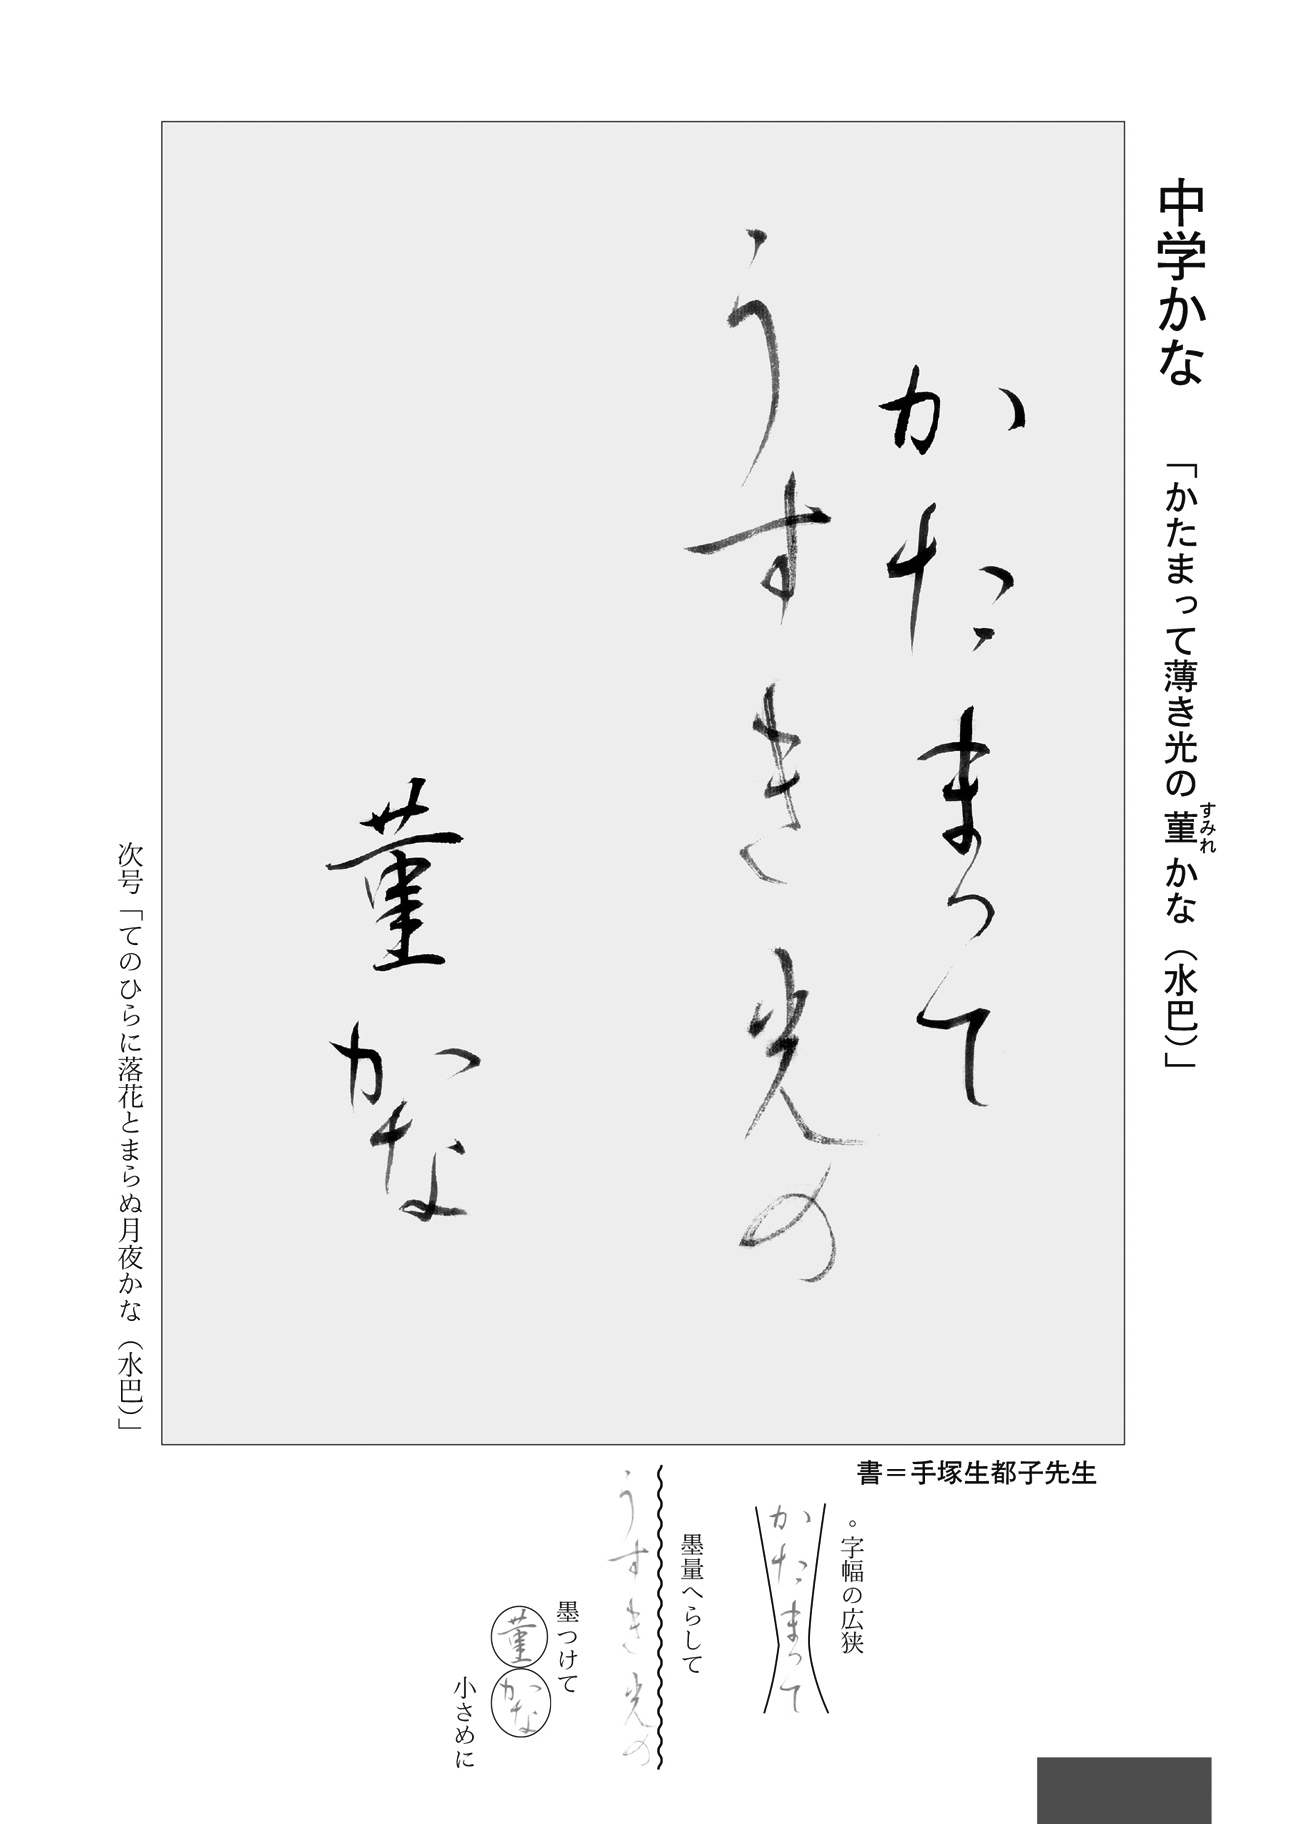 中学かな 「かたまって薄き光の菫かな（水巴）」
すみれ
かたまって
うすき光の
菫かな
次号「てのひらに落花とまらぬ月夜かな（水巴）」
書＝手塚生都子先生
。字幅の広狭
かたまって
墨量へらして
うすき光の
墨つけて
菫かな
小さめに